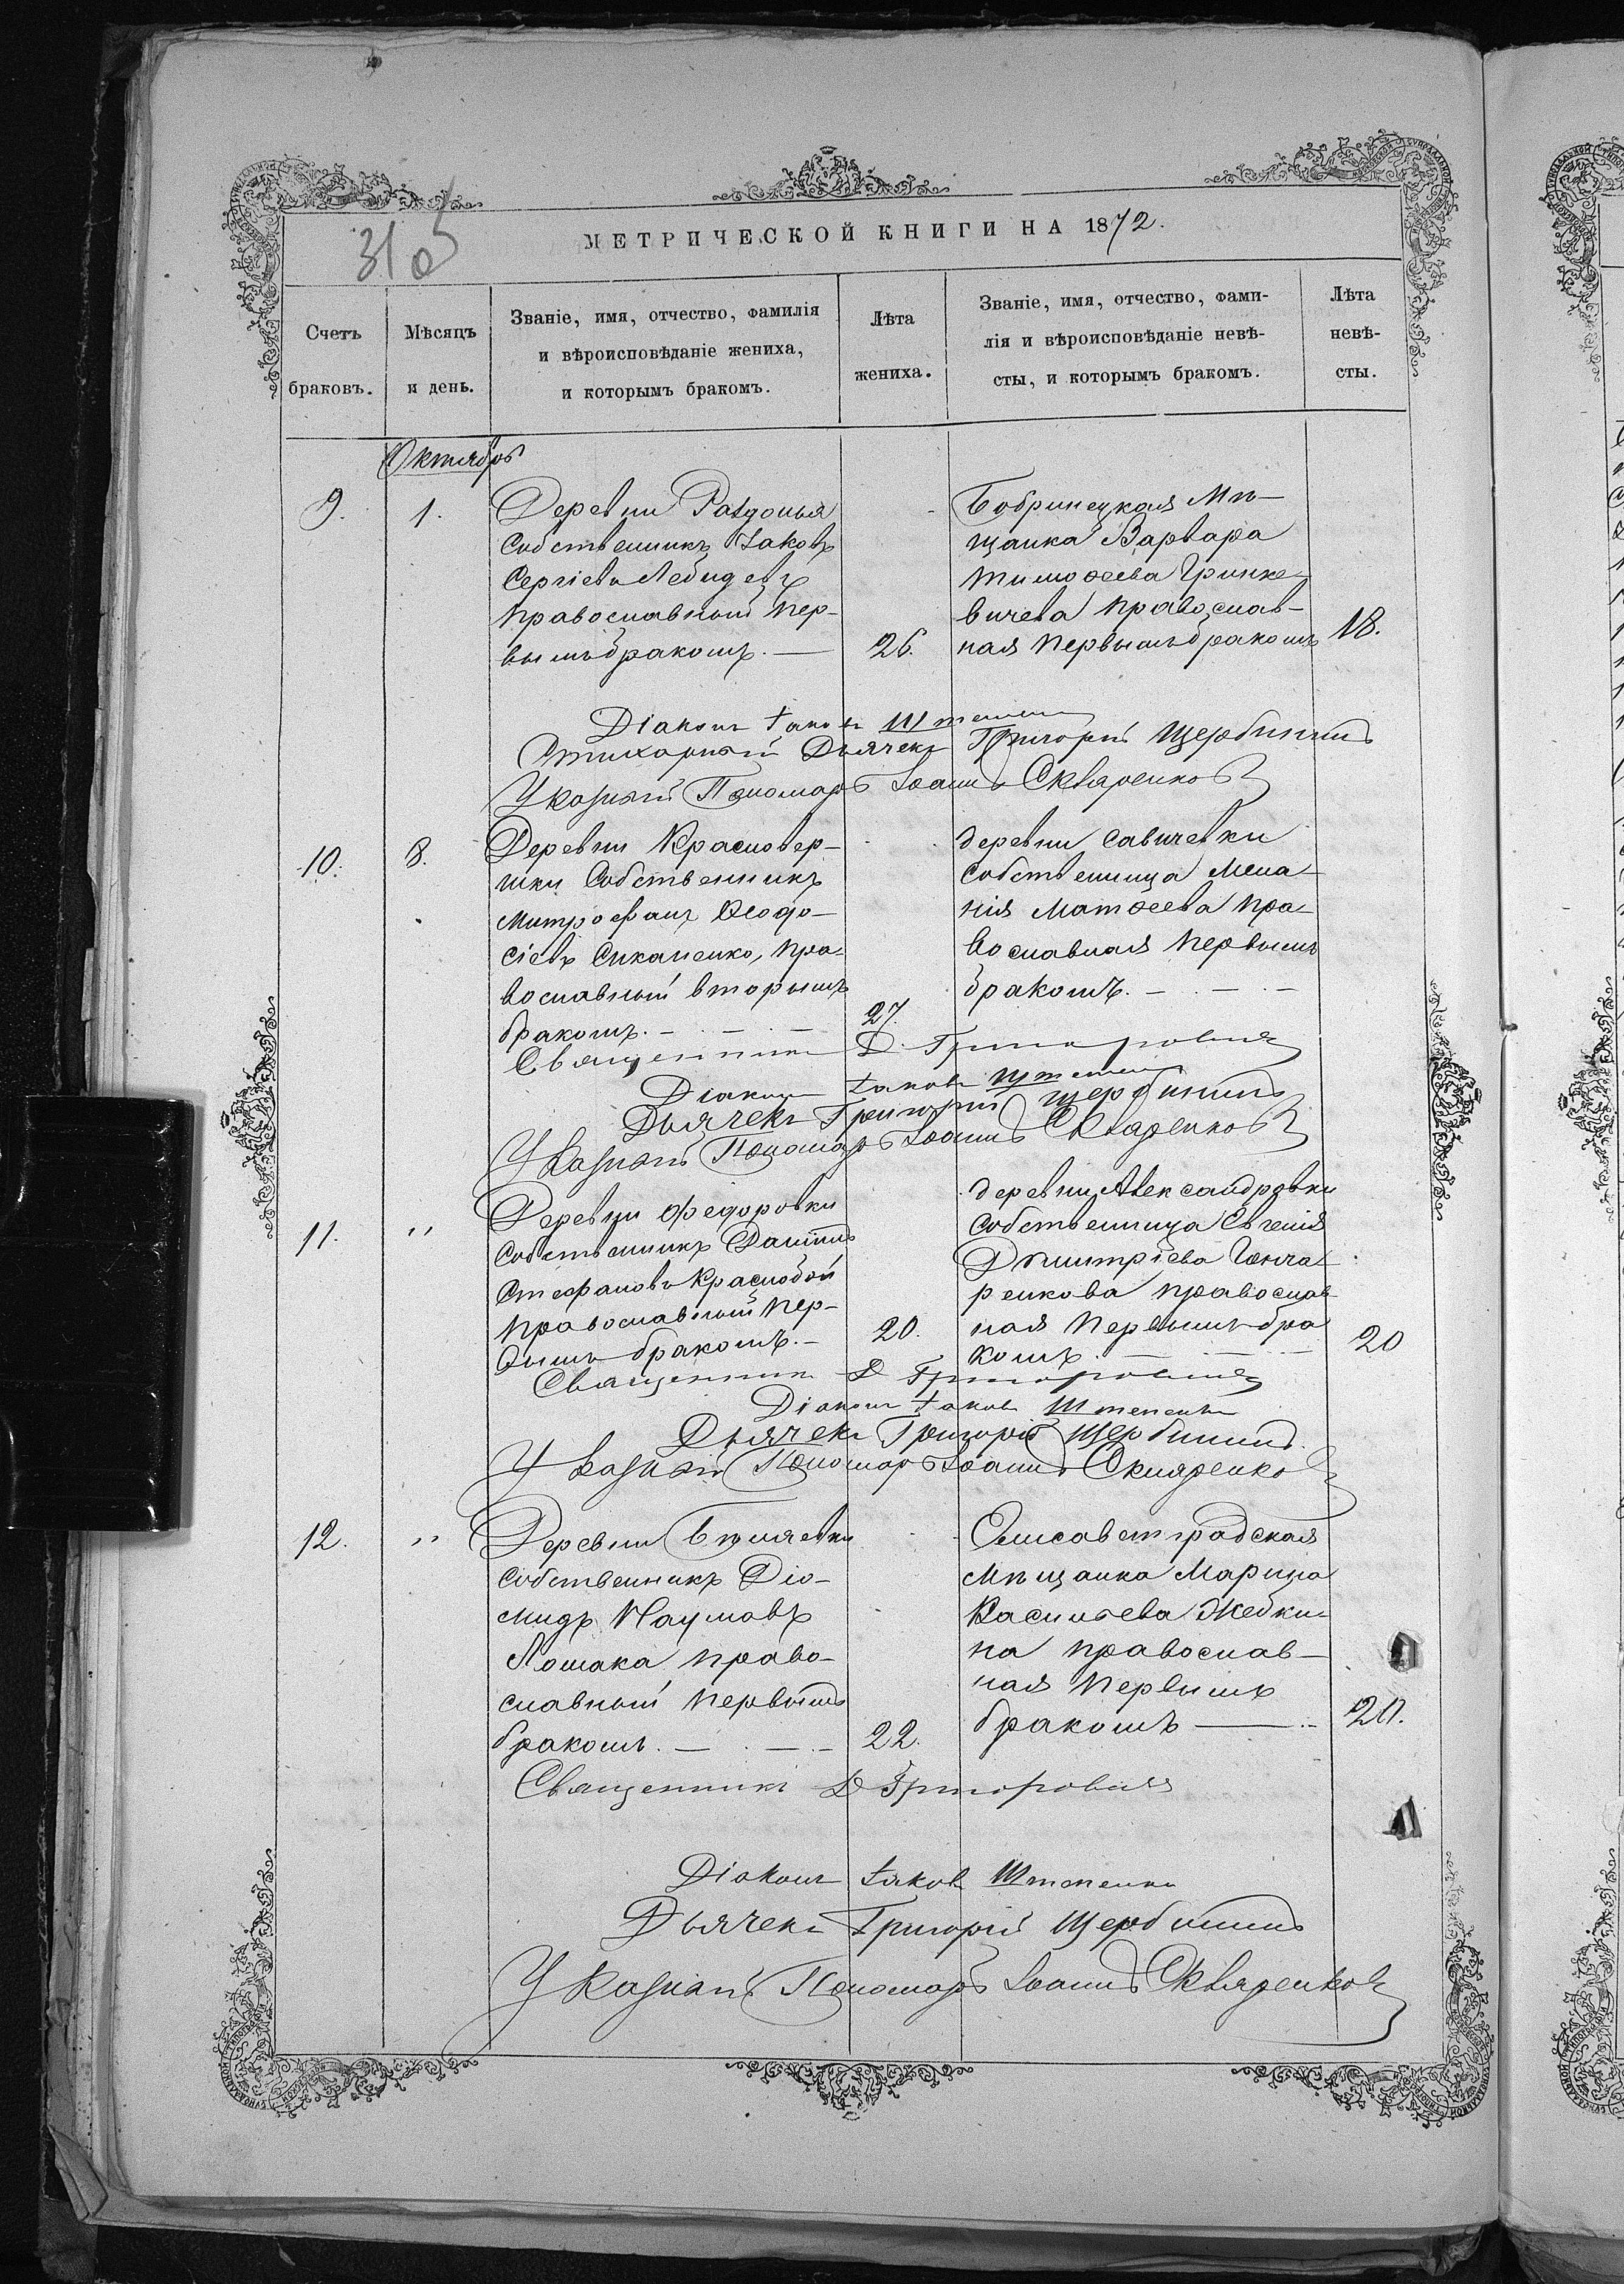 МЕТРИЧЕСКОЙ КНИГИ НА 1872.
310
Счетъ браковъ.
Мѣсяцъ и день.
Званіе, имя, отчество, фамилія
и вѣроисповѣданіе жениха,
и которымъ бракомъ.
Лѣта
жениха.
Званіе, имя, отчество, фами-
лія и вѣроисповѣданіе невѣ-
сты, и которымъ бракомъ.
Лѣта
невѣ-
сты.
Октябрь
9.
1.
Деревни Раздонья
Собственникъ Іаковъ
Сергіевъ Лебидевъ
православный пер-
вымъ бракомъ. —
26.
Бобринецкая Мѣ-
щанка Варвара
Тимоѳеева Гринке-
вичева православ-
ная первымъ бракомъ
18.
Діаконъ Іаковъ
Стихарный Дьячекъ Григорій Щербининъ
Указный Пономарь Іоаннъ Скляренковъ
10.
8.
Деревни Красновер-
шки Собственникъ
Митрофанъ Ѳеодо-
сіевъ Сиканенко, пра-
вославный вторымъ
бракомъ. — . — . —
27.
деревни Савичевки
собственница Мела-
нія Матѳеева пра-
вославная первымъ
бракомъ. — . — . —
Священникъ Д. Григоровичъ
Діаконъ Іаковъ
Дьячекъ Григорій Щербининъ
Указный Пономарь Іоаннъ Скляренковъ
11.
"
Деревни Федоровки
собственникъ Даніилъ
Стефановъ Краснобой
православный пер-
вымъ бракомъ. —
20.
деревни Александровки
собственница Евгенія
Димитріева Гонча-
ренкова православ
ная первымъ бра
комъ. — . — . —
20
Священникъ Д Григоровичъ
Діаконъ Іаковъ
Дьячекъ Григорій Щербининъ.
Указный Пономарь Іоаннъ Скляренко
12.
"
Деревни
собственникъ Діо-
мидъ Наумовъ
Лошака право-
славный первымъ
бракомъ. — . — . —
22.
Елисаветградская
Мѣщанка Марина
Васильева Жебки-
на православ-
ная первымъ
бракомъ — . —
20.
Священникъ Д Григоровичъ
Діаконъ Іаковъ
Дьячекъ Григорій Щербининъ
Указный Пономарь Іоаннъ Скляренковъ